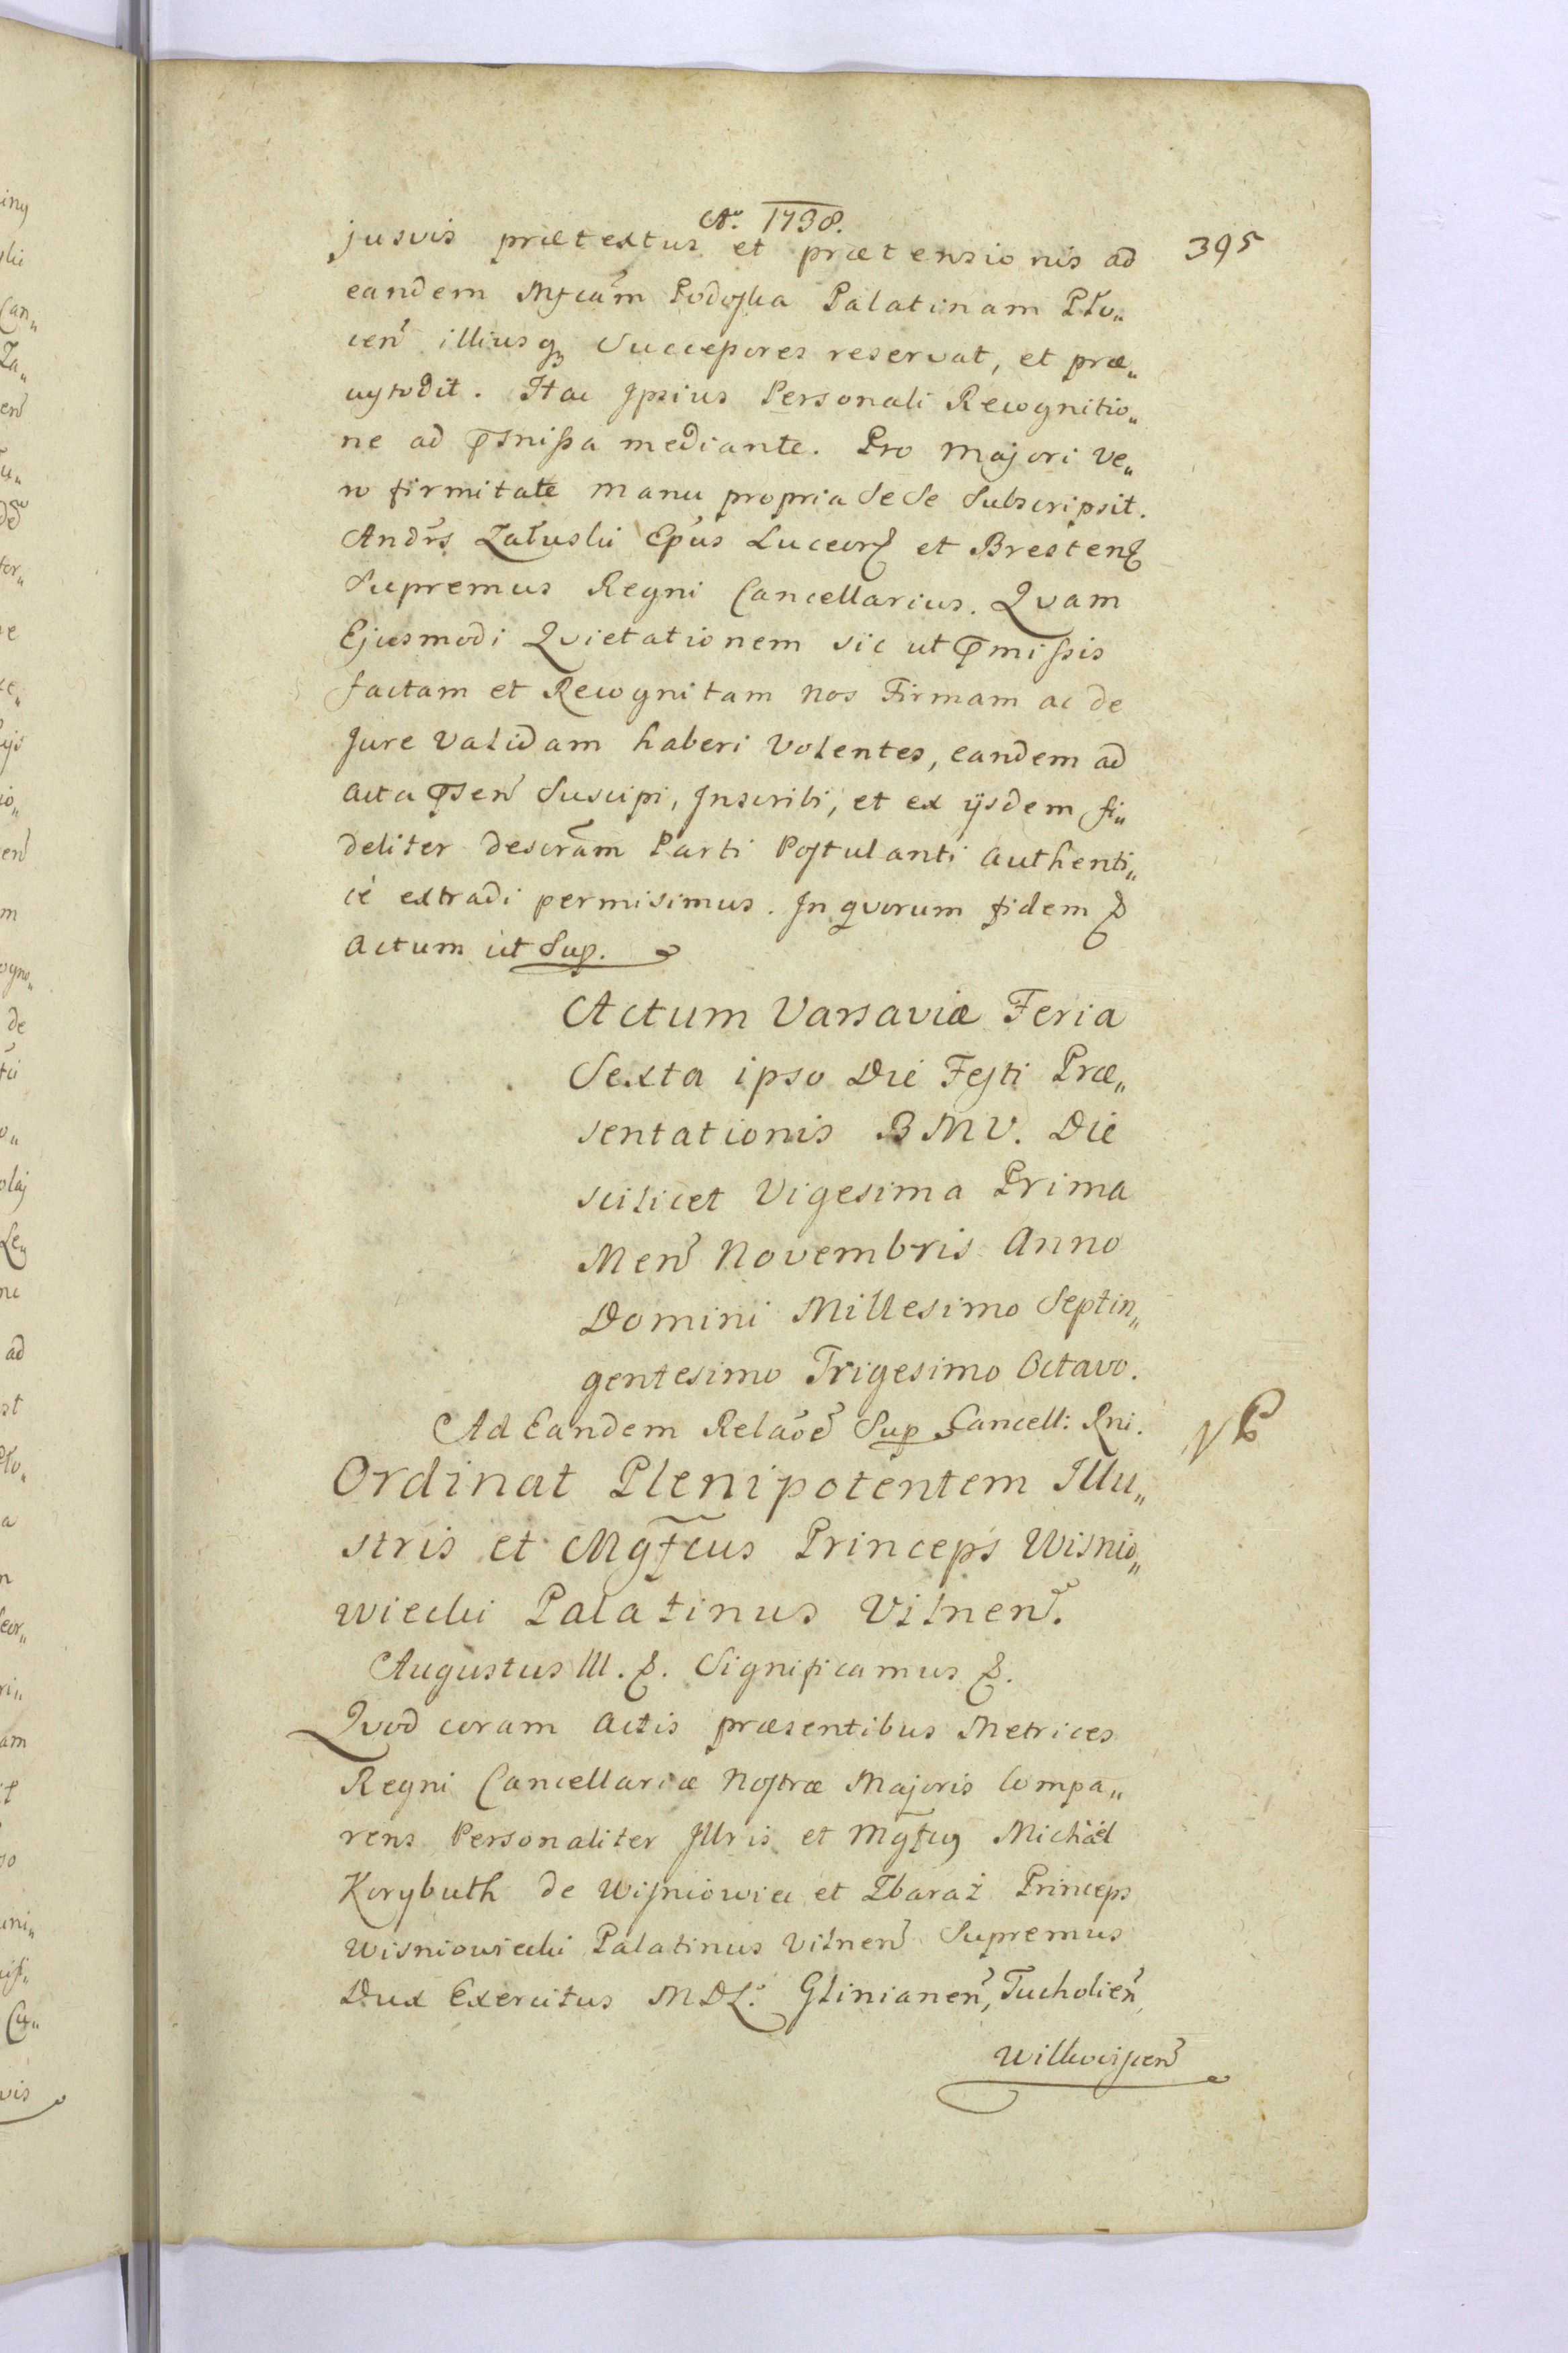 Aõ. 1738.
395
jusvis prætextus et prætensionis ad
eandem Mfcam Podoska Palatinam Pło„
cen̄ illiusq3 Successores reservat, et præ„
custodit. Hac Ipsius Personali Recognitio„
ne ad p̄missa mediante. Pro majori ve„
ro firmitate manu propria sese subscripsit.
Andrs Załuski Epus Luceor et Bresten
Supremus Regni Cancellarius. Qvam
Ejusmodi Qvietationem sic ut p̄missis
factam et Recognitam nos Firmam ac de
Jure validam haberi volentes, eandem ad
acta p̄sen̄ Suscipi, Inscribi, et ex ijsdem fi„
deliter descram Parti Postulanti authenti„
cè extradi permisimus. In qvorum fidem &
actum ut Sup.
Actum Varsaviæ Feria
Sexta ipso Die Festi Præ„
sentationis BMV. Die
scilicet Vigesima Prima
Men̄ Novembris Anno
Domini Millesimo Septin„
gentesimo Trigesimo Octavo.
Ad Eandem Relaoē Sup Cancell: Rni.
Ordinat Plenipotentem Illu„
stris et Mgfcus Princeps Wisnio„
wiecki Palatinus Vilnen̄.
Augustus III. &. Significamus &.
Qvod coram Actis præsentibus Metrices
Regni Cancellariæ Nostræ Majoris Compa„
rens Personaliter Illris et Mgfcus Michäel
Korybuth de Wisniowiec et Zbaraż Princeps
Wisniowiecki Palatinus Vilnen̄ Supremus
Dux Exercitus MDL: Glinianen̄, Tucholien̄,